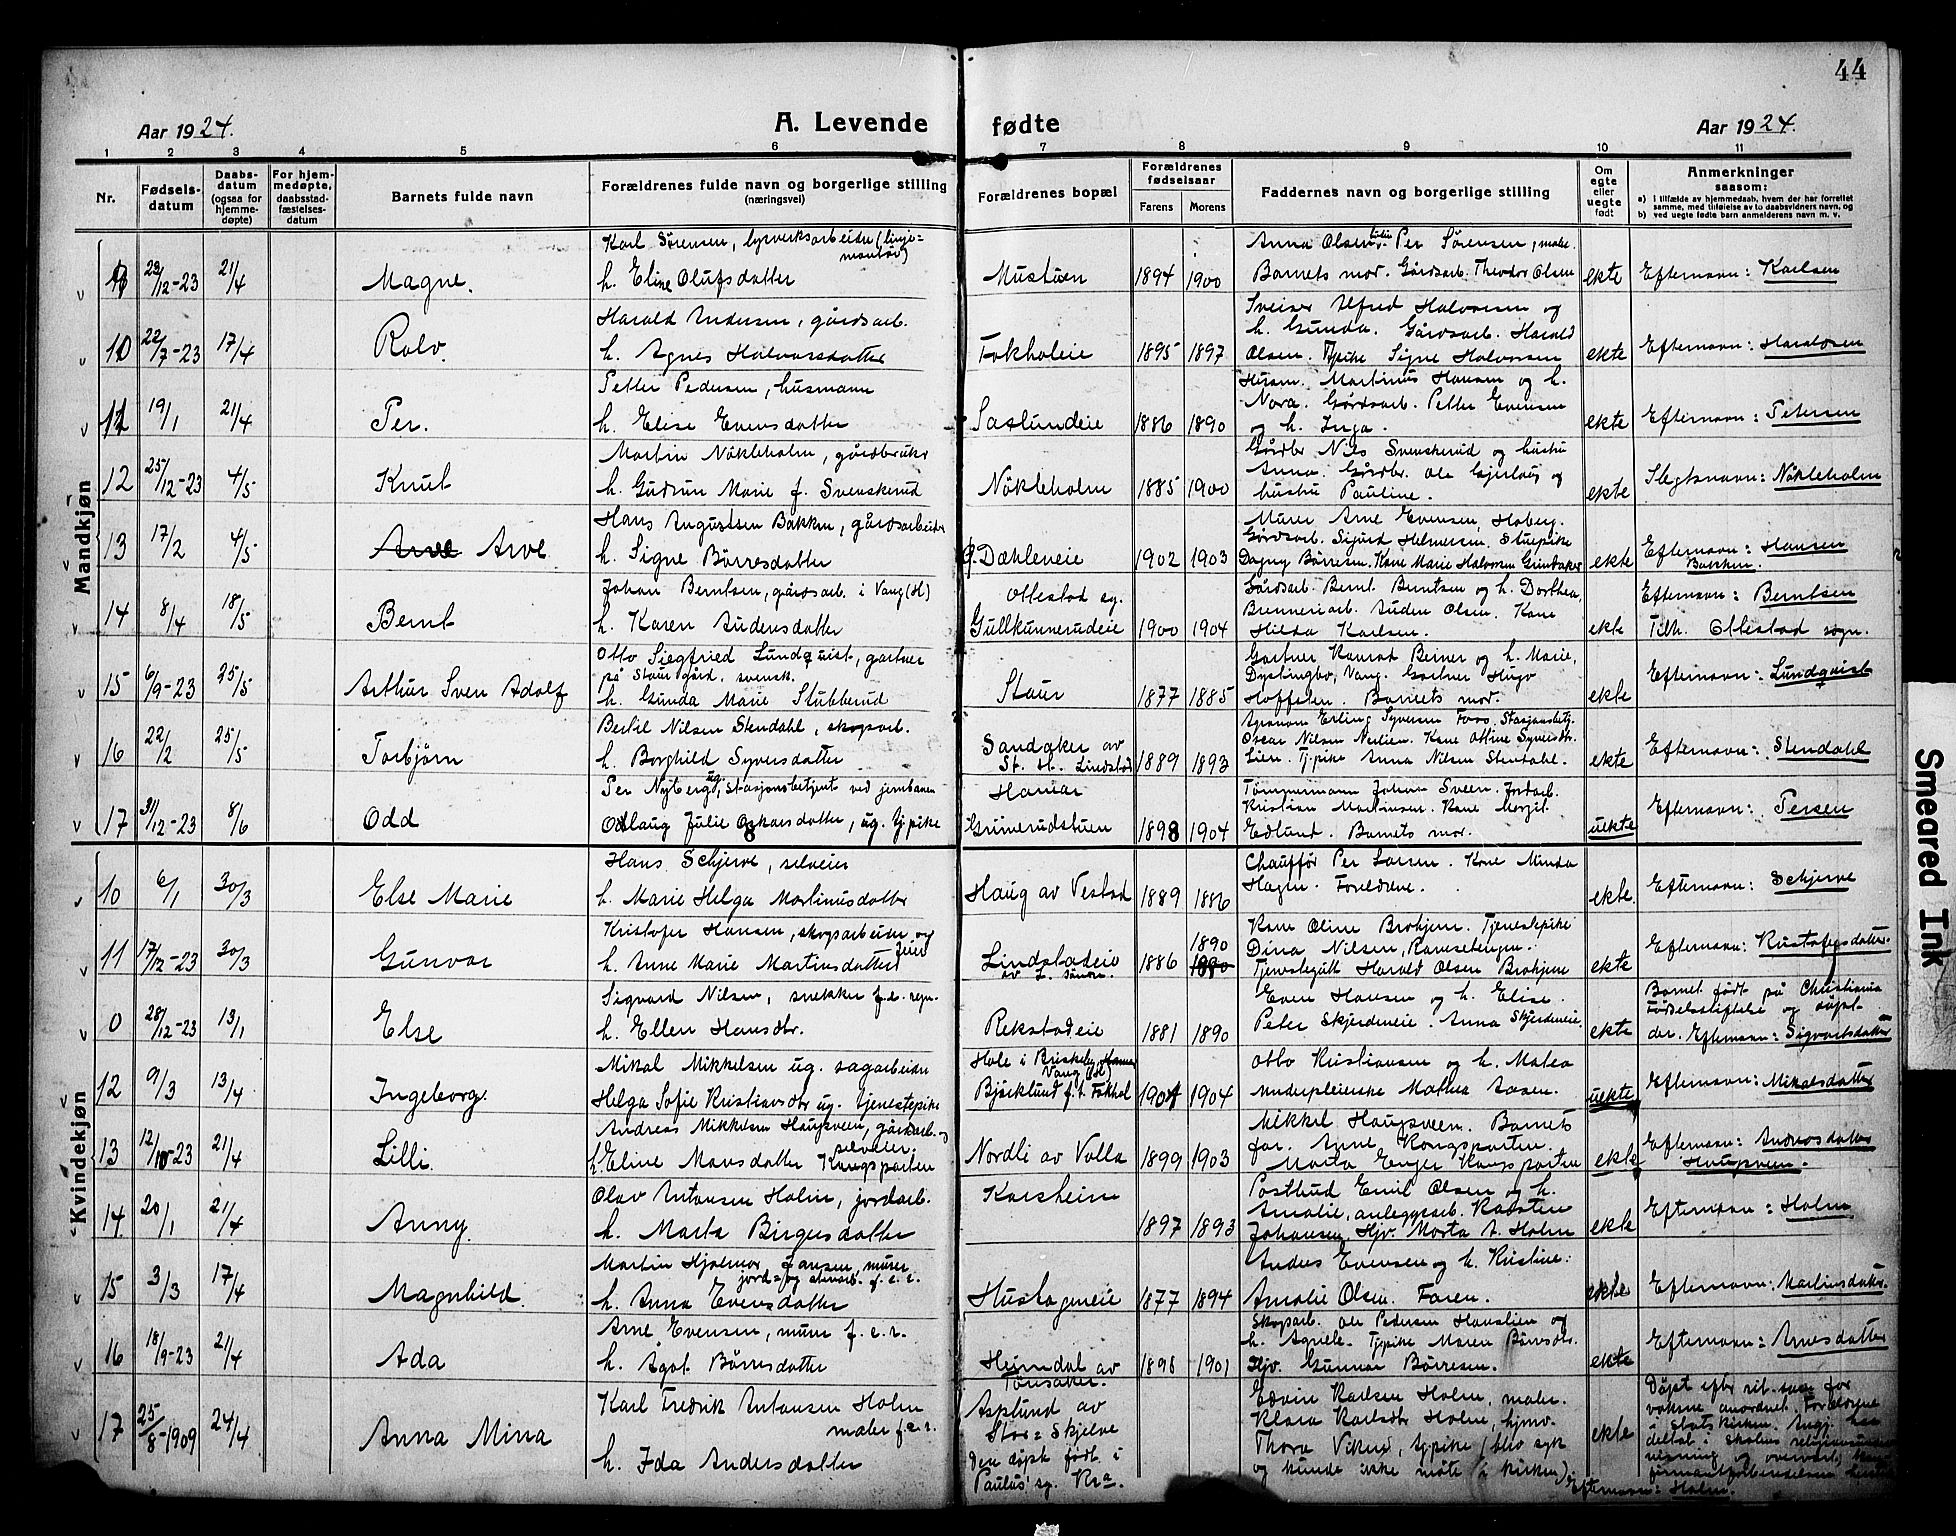 44
Aar 1924.
A. Levende fødte
Aar 1924.
1 2 3 4 5 6 7 8 9 10 11
Nr.
Fødsels-
datum
Daabs-
datum
(ogsaa for
hjemme-
døpte)
For hjem-
medøpte,
daabsstad-
fæstelses-
datum
Barnets fulde navn
Forældrenes fulde navn og borgerlige stilling
(næringsvei)
Forældrenes bopæl
Forældrenes
fødselsaar
Farens Morens
Faddernes navn og borgerlige stilling
Om
egte
eller
uegte
født
Anmerkninger
saasom:
a) i tilfælde av hjemmedaab, hvem der har forrettet
samme, med tilføielse av to daabsvidners navn, og
b) ved uegte fødte barn anmelderens navn m. v.
Mandkjøn
Karl Sørensen, lysverksarbeider (linje=
montør)
Anna Olsen, Per Sørensen, maler.
29/12-23 21/4 Magne. h. Eline Olufsdatter Mustuen 1894 1900 Barnets mor. Gårdsarb. Theodor Olsen ekte Efternavn: Karlsen
Harald Andersen, gårdsarb.
Sveiser Alfred Halvorsen og
h. Gunda. Gårdsarb. Harald
10 22/7-23 17/4 Rolv. h. Agnes Halvorsdatter Fokholeie 1895 1897 Olsen. Tjpike Signe Halvorsen ekte Efternavn: Haraldsen
Petter Pedersen, husmann
Husm. Martinus Hansen og h.
Nora. Gårdsarb. Petter Evensen
11 19/1 21/4 Per. h. Elise Evensdatter Saslundeie 1886 1890 og h. Inga. ekte Efternavn: Petersen
Martin Nökleholm, gårdbruker
Gårdbr Nils Svenskerud og hustru
Anna. Gårdbr. Ole Gjerlaug og
12 25/12-23 4/5 Knut h. Gudrun Marie f. Svenskerud Nökleholm 1885 1900 hustru Pauline. ekte Slegtsnavn: Nökleholm
Hans Augustsen Bakken, gårdsarbeider
Murer Arne Evensen, Hoberg.
Gårdsarb. Sigurd Helmersen. Stuepike
13 17/2 4/5 Arve Arve h. Signe Börresdatter Dæhleneie 1902 1903 Dagny Børresen. Kone Marie Halvorsen Grimbaker ekte Efternavn: Hansen
Bakken.
Johan Berntsen, gårdsarb. i Vang (H)
Ottestad sg.
Gårdsarb. Bernt Berntsen og h. Dorthea,
Brenneriarb. Anders Olsen. Kone
14 8/4 18/5 Bernt h. Karen Andersdatter Gullkunnerudeie 1900 1904 Hilda Karlsen. ekte Efternavn: Berntsen
Tilh. Ottestad sogn.
Otto Siegfried Lundquist, gartner
på Staur gård. svensk.
Gartner Konrad Berner og h. Marie,
Dystingbo, Vang. Gartner Hugo
15 6/9-23 25/5 Arthur Sven Adolf h. Gunda Marie Stubberud Staur 1877 1885 Hoffsten. Barnets mor. ekte Efternavn: Lundqvist
Bertil Nilsen Stendahl, skogsarb.
Agronom Erling Syversen Foss. Stasjonsbetj.
Oscar Nilsen Nerlien. Kone Ottine Syversdtr.
16 22/2 25/5 Torbjørn h. Borghild Syversdatter Sandaker av
St. H. Lindstad 1889 1893 Lien. Tjpike Anna Nilsen Stendahl. ekte Efternavn: Stendahl
Per Nyberg ug, stasjonsbetjent ved jernbanen
Hamar
Tömmermann Johan Sveen. Jordarb.
Kristian Martinsen. Kone Margit
17 31/12-23 8/6 Odd Odlaug Julie Oskarsdatter, ug. tjpike Grinerudstuen 1898 1904 Edlund. Barnets mor. uekte Efternavn: Persen
Kvindekjøn
Hans Schjerve, selveier
Chauffør Per Larsen. Kone Minda
10 6/1 30/3 Else Marie h. Marie Helga Martinusdatter Haug av Vestad 1889 1886 Hagen. Foreldrene. ekte Efternavn: Schjerve
Kristofer Hansen, skogsarbeider og
Kone Oline Brohjem. Tjenestepike
11 17/12-23 30/3 Gunvor h. Anne Marie Martinsdatter Lindstadeie
av L. søndre. 1886 1890 1880 Dina Nilsen, Ramsetengen.
Tjenestegutt Harald Olsen Brohjem ekte Efternavn: Kristofersdatter.
Sigvard Nilsen, snekker f.e. regn.
Even Hansen og h. Elise.
0 28/12-23 13/1 Else h. Ellen Hansdtr. Rekstadeie 1881 1890 Peter Skjerdeneie. Anna Skjerdeneie. ekte Barnet født på Christiania
Fødselsstiftelse og døpt
der. Efternavn: Sigvartsdatter
Mikal Mikkelsen ug. sagarbeider
Otto Kristiansen og h. Matea
12 9/3 13/4 Ingeborg. Helga Sofie Kristiansdtr ug. tjenestepike Bjørklund f.t. Fokhol 1901 1904 underpleierske Mathea Aasen. uekte Efternavn: Mikalsdatter
Andreas Mikkelsen Haugsveen, gårdarb. og
selveier,
Mikkel Haugsveen. Barnets
far. Anne Kongsparten.
13 12/10-23 21/4 Lilli. h. Eline Monsdatter Kongsparten Nordli av Valla 1899 1903 Marta Enger Kongsparten ekte Efternavn: Andreasdatter
Haugsveen.
Olav Antonsen Holm, jordarb.
Karsheim
Postbud Emil Olsen og h.
Amalie, anleggsarb. Karsten
14 20/1 21/4 Anny. h. Marta Birgersdatter 1897 1893 Johansen, Hjv. Marta A. Holm ekte Efternavn: Holm
Martin Hjalmar Hansen, murer
jord= og stenarb. f.e.r.
Anders Evensen og h. Kristine.
15 3/3 17/4 Magnhild. h. Anna Evensdatter Hustageneie 1877 1894 Amalie Olsen. Faren. ekte Efternavn: Martinsdatter
Arne Evensen, murer f.e.r.
Skogsarb. Ole Pedersen Hanslien og
h. Agnete. Tjpike Maren Børresdtr.
16 18/9-23 21/4 Ada h. Ågot Børresdatter Heimdal av
Tønsaker. 1898 1901 Hjv. Gunnar Børresen. ekte Efternavn: Arnesdatter
Karl Fredrik Antonsen Holm
maler f.e.r.
Asplund av
Stor=Skjelve
Den døpt født i
Paulus' sg. Kra.
Edvin Karlsen Holm, maler.
Klara Karlsdtr Holm, hjmv.
Thora Vikerud, tjpike (blev syk
og kunde ikke møte i kirken).
17 25/8-1909 24/4 Anna Mina h. Ida Andersdatter ekte Døpt efter rit. som for
voksne anordnet. Foreldrene
i Statskirken.
Efternavn: Holm.
Smeared Ink